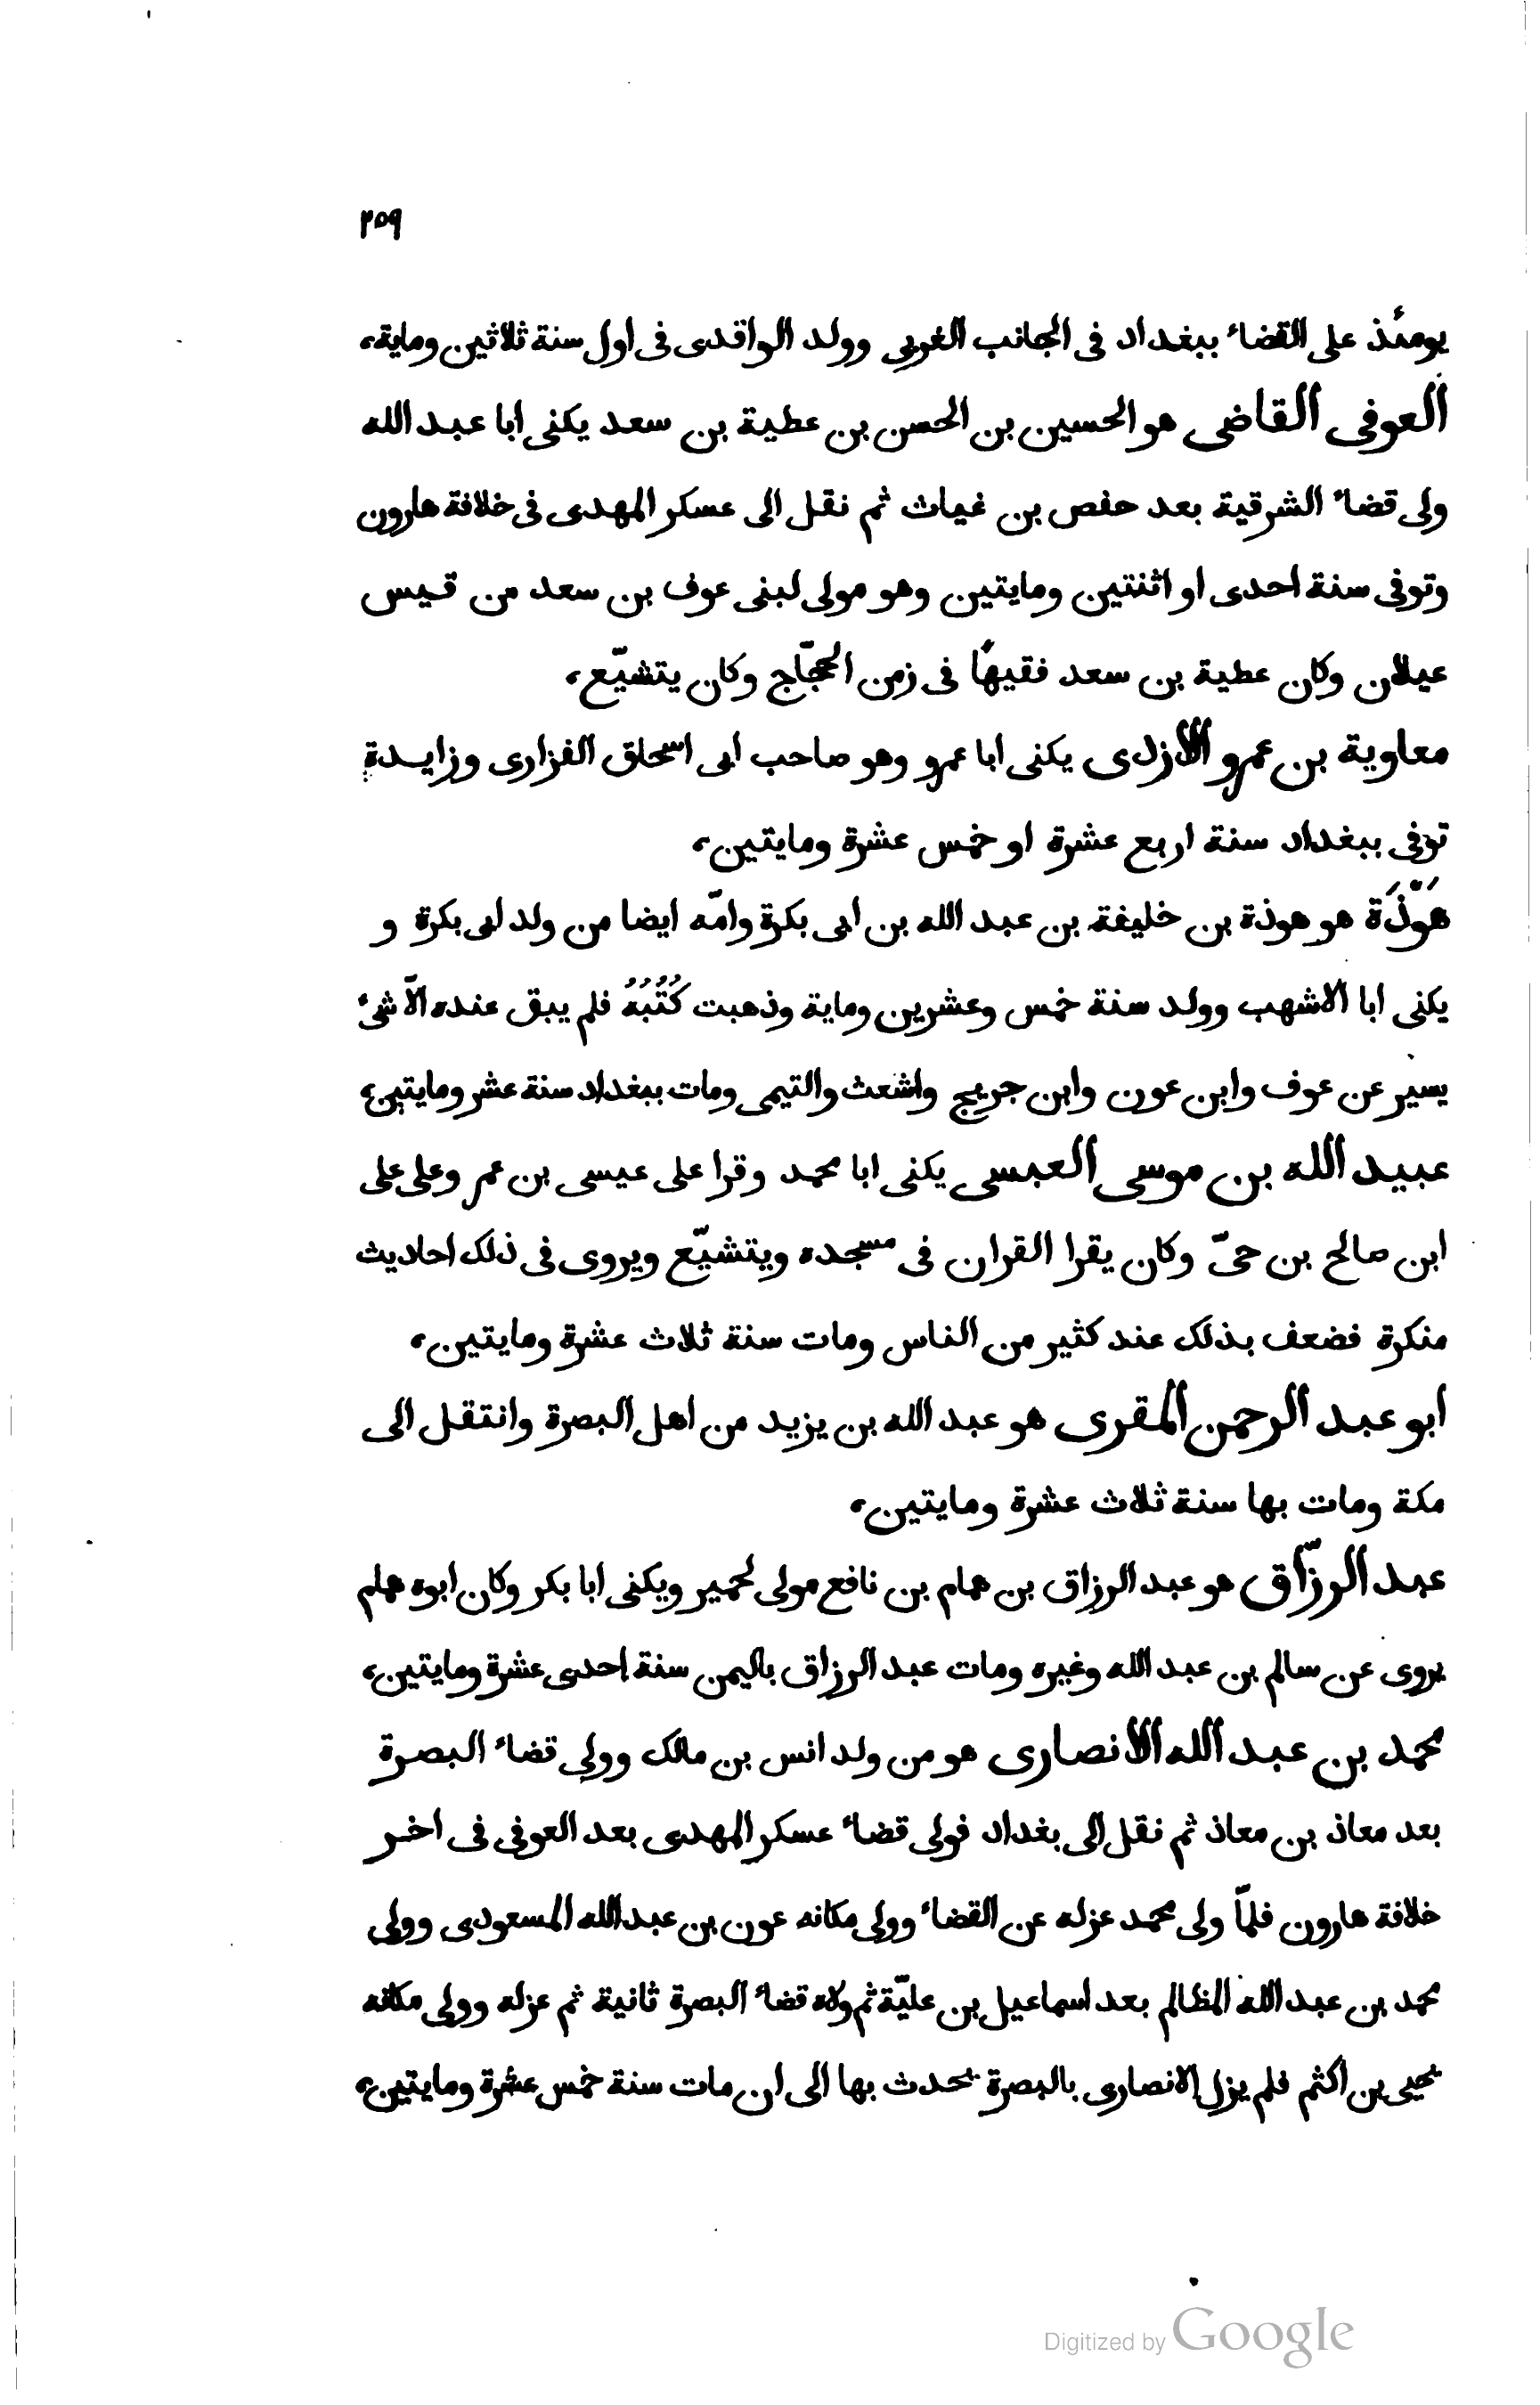 ٢٥٩
يومئذ على القضاء ببغداد فى الجانب الغربى وولد الواقدى فى اول سنة ثلاثين وماية،
العوفى القاضى هو الحسين بن الحسن بن عطية بن سعد يكنى ابا عبد الله
ولى قضاء الشرقية بعد حفص بن غياث ثم نقل الى عسكر المهدى فى خلافة هارون
وتوفى سنة احدى او اثنتين ومايتين وهو مولى لبنى عوف بن سعد من قيس
عيلان وكان عطية بن سعد فقيهًا فى زمن الحجّاج وكان يتشيّع،
معاوية بن عمرو الازدى يكنى ابا عمرو وهو صاحب ابى اسحاق الفزارى وزايدة
توفى ببغداد سنة اربع عشرة او خمس عشرة ومايتين،
هَوْذَة هو هوذة بن خليفة بن عبد الله بن ابى بكرة وامّه ايضا من ولد ابى بكرة و
يكنى ابا الاشهب وولد سنة خمس وعشرين وماية وذهبت كُتُبُهُ فلم يبق عنده الّا شىء
يسير عن عوف وابن عون وابن جريج واشعث والتيمى ومات ببغداد سنة عشر ومايتين،
عبيد الله بن موسى العبسى يكنى ابا محمد وقرا على عيسى بن عمر وعلى على
ابن صالح بن حىّ وكان يقرا القران فى مسجده ويتشيّع ويروى فى ذلك احاديث
منكرة فضعف بذلك عند كثير من الناس ومات سنة ثلاث عشرة ومايتين،
ابو عبد الرحمن المقرى هو عبد الله بن يزيد من اهل البصرة وانتقل الى
مكة ومات بها سنة ثلاث عشرة ومايتين،
عبد الرزّاق هو عبد الرزاق بن همام بن نافع مولى لحمير ويكنى ابا بكر وكان ابوه همام
يروى عن سالم بن عبد الله وغيره ومات عبد الرزاق باليمن سنة احدى عشرة ومايتين،
محمد بن عبد الله الانصارى هو من ولد انس بن مالك وولى قضاء البصرة
بعد معاذ بن معاذ ثم نقل الى بغداد فولى قضاء عسكر المهدى بعد العوفى فى اخر
خلافة هارون فلمّا ولى محمد عزله عن القضاء وولى مكانه عون بن عبد الله المسعودى وولى
محمد بن عبد الله المظالم بعد اسماعيل بن عليّة ثم ولاه قضاء البصرة ثانية ثم عزله وولى مكانه
يحيى بن اكثم فلم يزل الانصارى بالبصرة يحدث بها الى ان مات سنة خمس عشرة ومايتين،
Digitized by Google